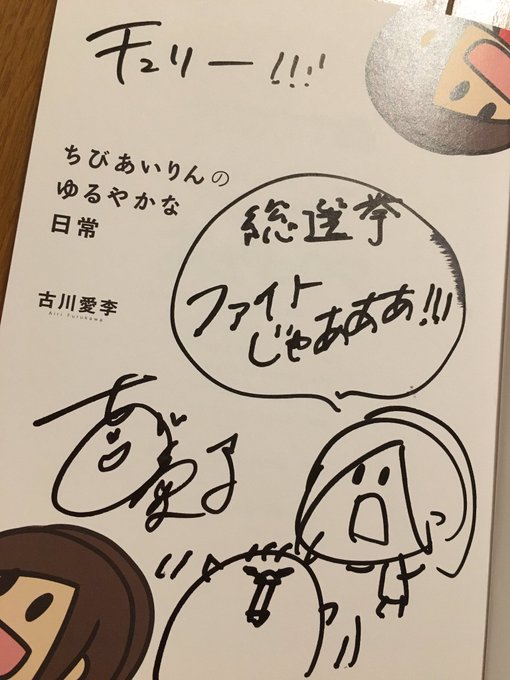 チュリー!!!
ちびあいりんの
ゆるやかな
日常
古川愛李
Airi Furukawa
総選挙
ファイト
じゃあああ!!!